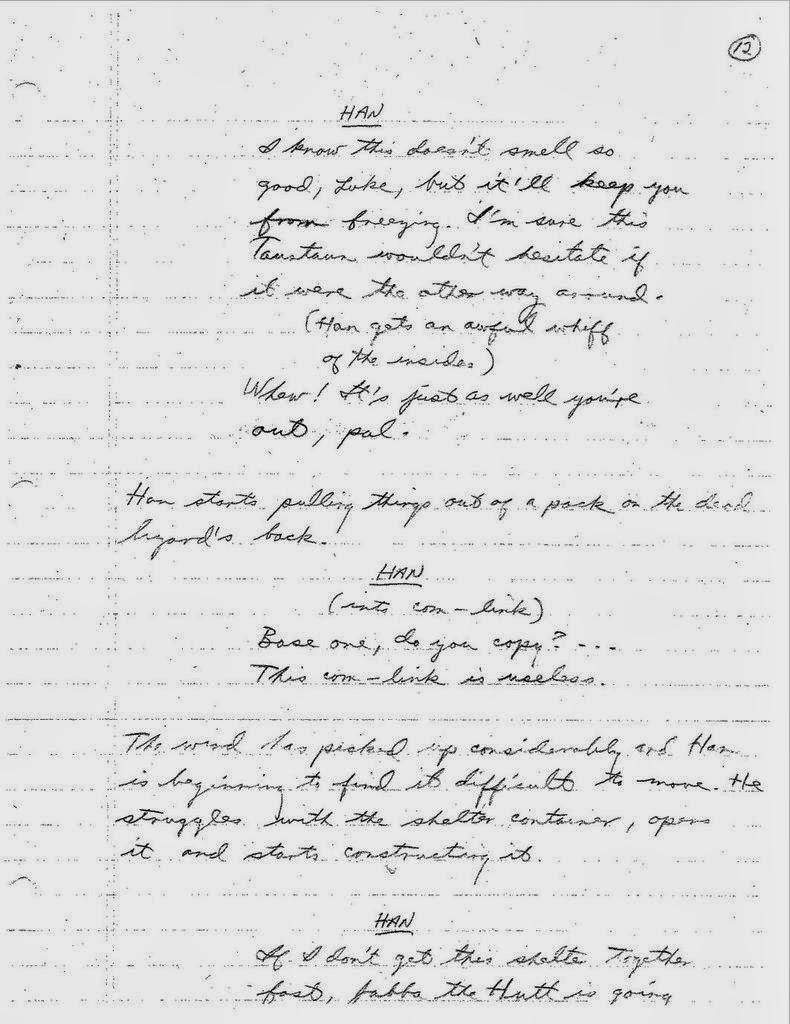 12
HAN
I know this doesn't smell so
good, Luke, but it'll keep you
from freezing. I'm sure this
Tauntaun wouldn't hesitate if
it were the other way around.
(Han gets an awful whiff
of the insides)
Whew! It's just as well you're
out, pal.
Han starts pulling things out of a pack on the dead
lizard's back.
HAN
(into com-link)
Base one, do you copy? ...
This com-link is useless.
The wind has picked up considerably and Han
is beginning to find it difficult to move. He
struggles with the shelter container, opens
it and starts constructing it.
HAN
If I don't get this shelter together
fast, Jabba the Hutt is going